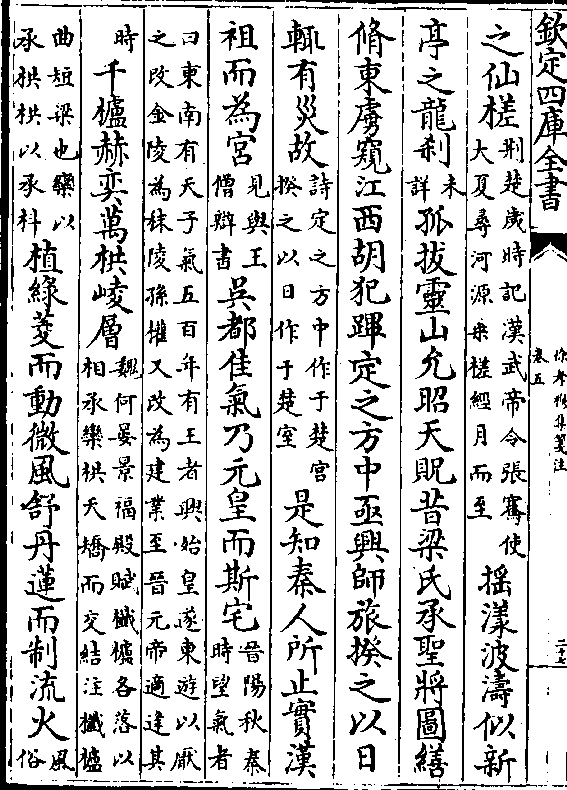 欽定四庫全書
徐孝穆集箋注
卷五
二十七
之仙槎荆楚歲時記漢武帝令張騫使大夏尋河源乗槎經月而至搖漾波濤似新
亭之龍刹未詳孤拔靈山允昭天貺昔梁氏承聖將圖繕
脩東虜窺江西胡犯蹕定之方中亟興師旅揆之以日
輒有災故詩定之方中作于楚宫揆之以日作于楚室是知秦人所止實漢
祖而為宮見與王僧辯書吳都佳氣乃元皇而斯宅晉陽秋秦時望氣者
曰東南有天子氣五百年有王者興始皇遂東遊以厭之改金陵為秣陵孫權又改為建業至晉元帝適達其
時千櫨赫奕萬栱崚層魏何晏景福殿賦櫼櫨各落以相承欒栱夭矯而交結注櫼櫨
曲短梁也欒以承栱栱以承枓植綠芰而動微風舒丹蓮而制流火風俗